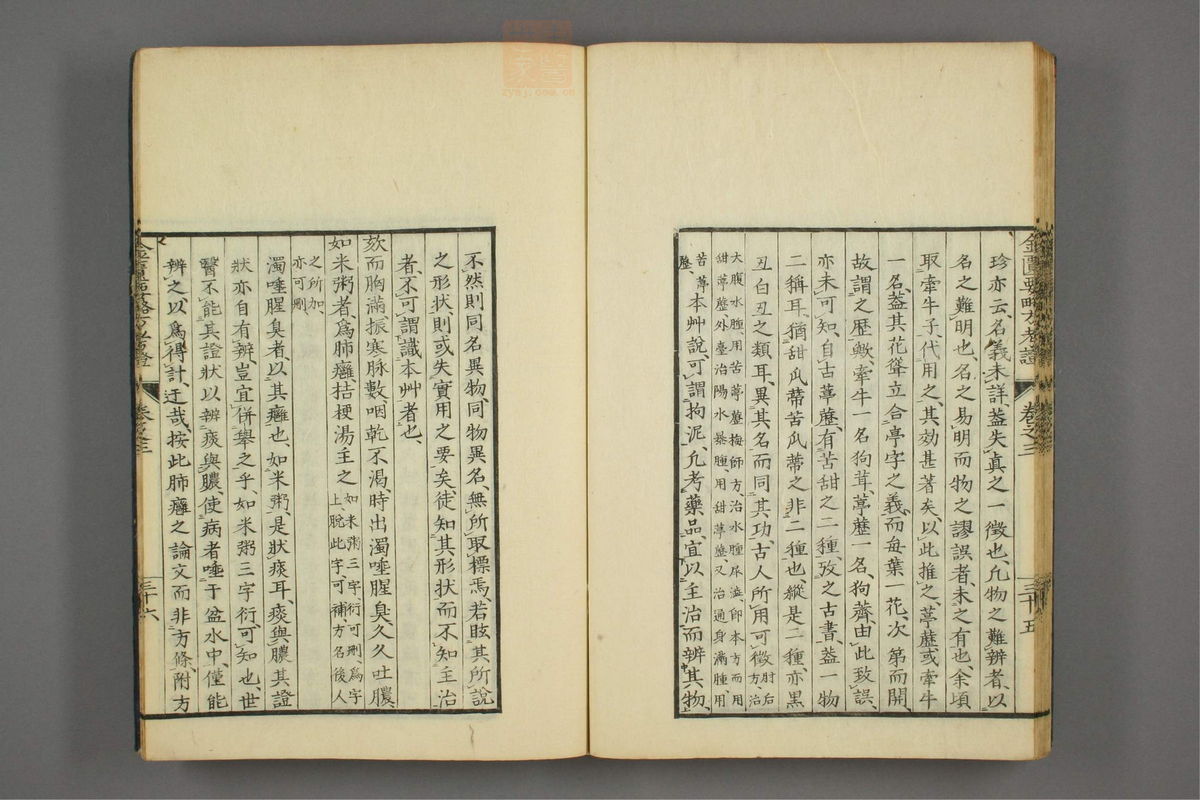 金匱要略方考證　卷之三　三十五
珍亦云、名義未詳蓋失真之一徵也、凡物之難辨者、以
名之難明也、名之易明而物之謬誤者、未之有也、余頃
取牽牛子、代用之、其効甚著矣、以此推之、葶藶或牽牛
一名、蓋其花聳立合亭字之義而每葉一花、次第而開、
故謂之歷歟、牽牛一名狗茸、葶藶一名狗薺、由此致誤、
亦未可知、自古葶藶、有苦甜之二種、攷之古書、蓋一物
二稱耳、猶甜瓜蔕苦瓜蔕之非二種也、縱是二種、亦黑
丑白丑之類耳、異其名而同其功、古人所用可徵、肘后方、治
大腹水腫、用苦葶藶、梅師方、治水腫尿澁、即本方而用
甜葶藶、外臺治陽水暴腫、用甜葶藶又治通身滿腫、用
苦葶藶、本艸說、可謂拘泥、凡考藥品、宜以主治而辨其物、
不然則同名異物、同物異名、無所取標焉、若眩其所說
之形狀、則或失實用之要矣、徒知其形狀而不知主治
者、不可謂識本艸者也、
欬而胸滿振寒脉數咽乾不渴時出濁唾腥臭久久吐膿
如米粥者、爲肺癰、桔梗湯主之 如米粥三字衍可刪、爲字上、脫此字可補、方名後人
之所加、亦可刪
濁唾腥臭者、以其癰也、如米粥、是狀痰耳、痰與膿其證
狀亦自有辨、豈宜併舉之乎、如米粥三字衍可知也、世
醫不能其證狀以辨痰與膿、使病者唾于盆水中、僅能
辨之以爲得計、迂哉、按此肺癰之論文而非方條、附方
金匱要略方考證　卷之三　三十六
zysj.com.cn